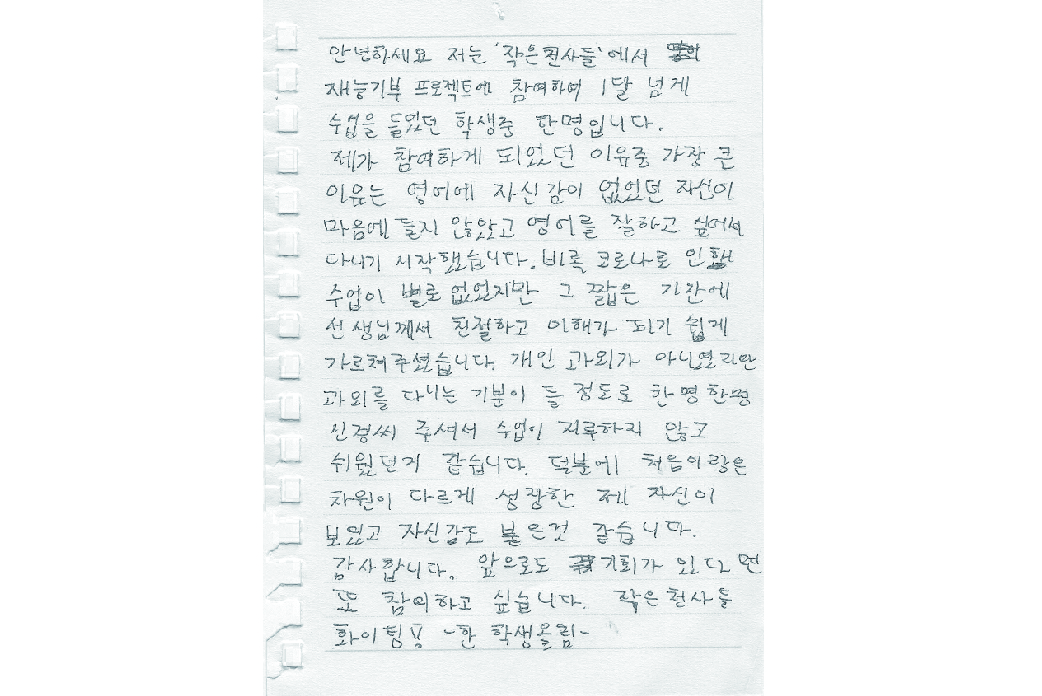 안녕하세요 저는 '작은천사들'에서
재능기부 프로젝트에 참여하여 1달 넘게
수업을 들었던 학생중 한명입니다.
제가 참여하게 되었던 이유중 가장 큰
이유는 영어에 자신감이 없었던 자신이
마음에 들지 않았고 영어를 잘하고 싶어서
다니기 시작했습니다. 비록 코로나로 인해
수업이 별로 없었지만 그 짧은 기간에
선생님께서 친절하고 이해가 되기 쉽게
가르쳐주셨습니다. 개인 과외가 아니었지만
과외를 다니는 기분이 들 정도로 한명한명
신경써 주셔서 수업이 지루하지 않고
쉬웠던거 같습니다. 덕분에 처음이랑은
차원이 다르게 성장한 제 자신이
보였고 자신감도 붙은것 같습니다.
감사합니다. 앞으로도 기회가 있다면
또 참여하고 싶습니다. 작은천사들
화이팅!! -한 학생올림-